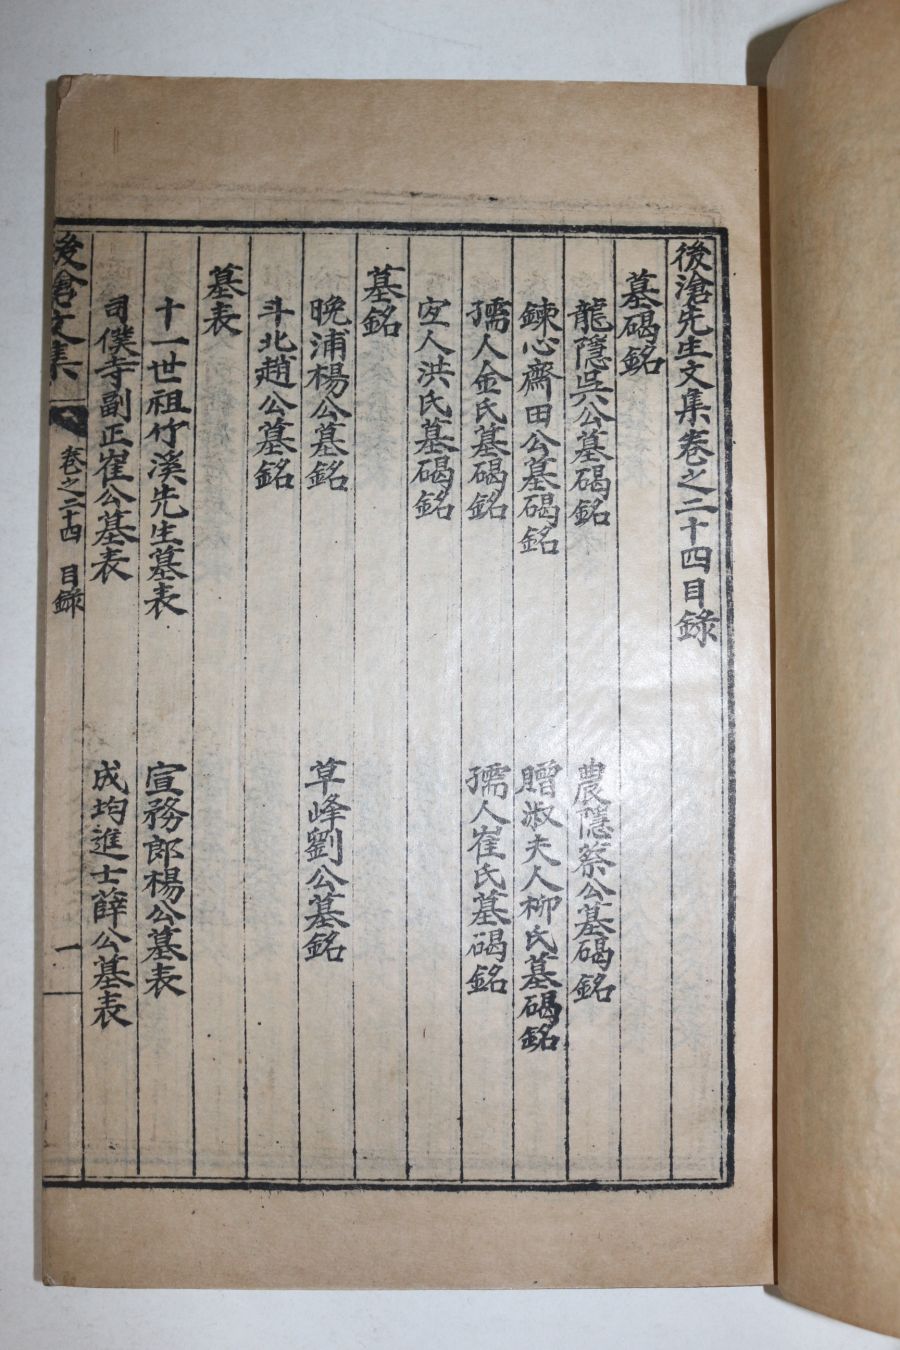 後滄先生文集卷之二十四目錄
墓碣銘
龍隱吳公墓碣銘 農隱蔡公墓碣銘
鍊心齋田公墓碣銘 贈淑夫人柳氏墓碣銘
孺人金氏墓碣銘 孺人崔氏墓碣銘
宜人洪氏墓碣銘
墓銘
晚浦楊公墓銘 草峰劉公墓銘
斗北趙公墓銘
墓表
十一世祖竹溪先生墓表 宣務郎楊公墓表
司僕寺副正崔公墓表 成均進士薛公墓表
後滄文集 卷之二十四 目錄 一